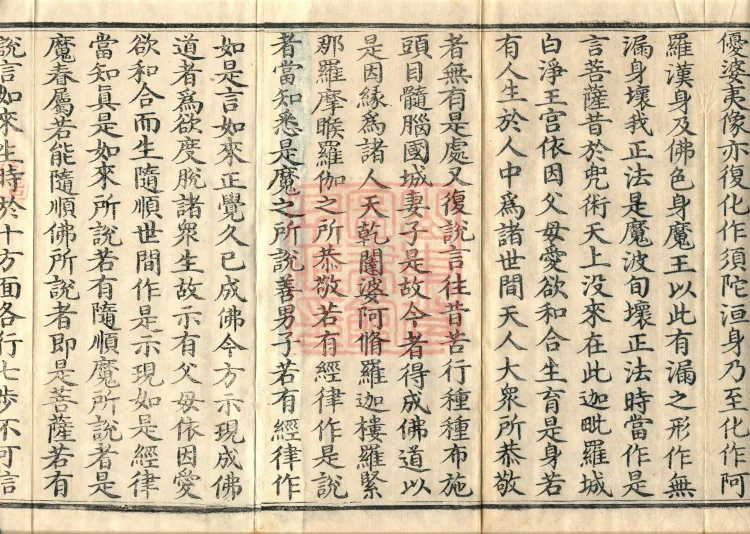 優婆夷像亦復化作須陀洹身乃至化作阿
羅漢身及佛色身魔王以此有漏之形作無
漏身壞我正法是魔波旬壞正法時當作是
言菩薩昔於兜術天上没來在此迦毗羅城
白淨王宮依因父母愛欲和合生育是身若
有人生於人中爲諸世間天人大衆所恭敬
者無有是處又復說言往昔苦行種種布施
頭目髓腦國城妻子是故今者得成佛道以
是因緣爲諸人天乾闥婆阿脩羅迦樓羅緊
那羅摩睺羅伽之所恭敬若有經律作是說
者當知悉是魔之所說善男子若有經律作
如是言如來正覺久已成佛今方示現成佛
道者爲欲度脫諸衆生故示有父母依因愛
欲和合而生隨順世間作是示現如是經律
當知眞是如來所說若有隨順魔所說者是
魔眷屬若能隨順佛所說者即是菩薩若有
說言如來生時於十方面各行七步不可言